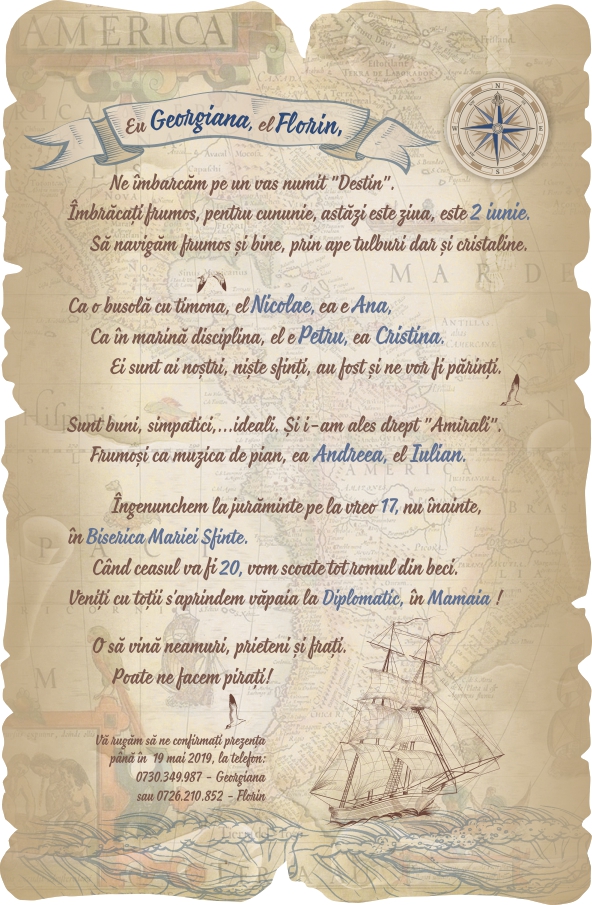 AMERICA
Eu Georgiana, el Florin,
N
W E
S
Ne îmbarcăm pe un vas numit "Destin".
Îmbrăcați frumos, pentru cununie, astăzi este ziua, este 2 iunie.
Să navigăm frumos și bine, prin ape tulburi dar și cristaline.
MAR DE
Ca o busolă cu timona, el Nicolae, ea e Ana,
Ca în marină disciplina, el e Petru, ea Cristina.
Ei sunt ai noștri, niște sfinți, au fost și ne vor fi părinți.
Sunt buni, simpatici,...ideali. Și i-am ales drept "Amirali".
Frumoși ca muzica de pian, ea Andreea, el Iulian.
Îngenunchem la jurăminte pe la vreo 17, nu înainte,
în Biserica Mariei Sfinte.
Când ceasul va fi 20, vom scoate tot romul din beci.
Veniți cu toții s'aprindem văpaia la Diplomatic, în Mamaia !
O să vină neamuri, prieteni și frați.
Poate ne facem pirați!
Vă rugăm să ne confirmați prezența
până în 19 mai 2019, la telefon:
0730.349.987 - Georgiana
sau 0726.210.852 - Florin